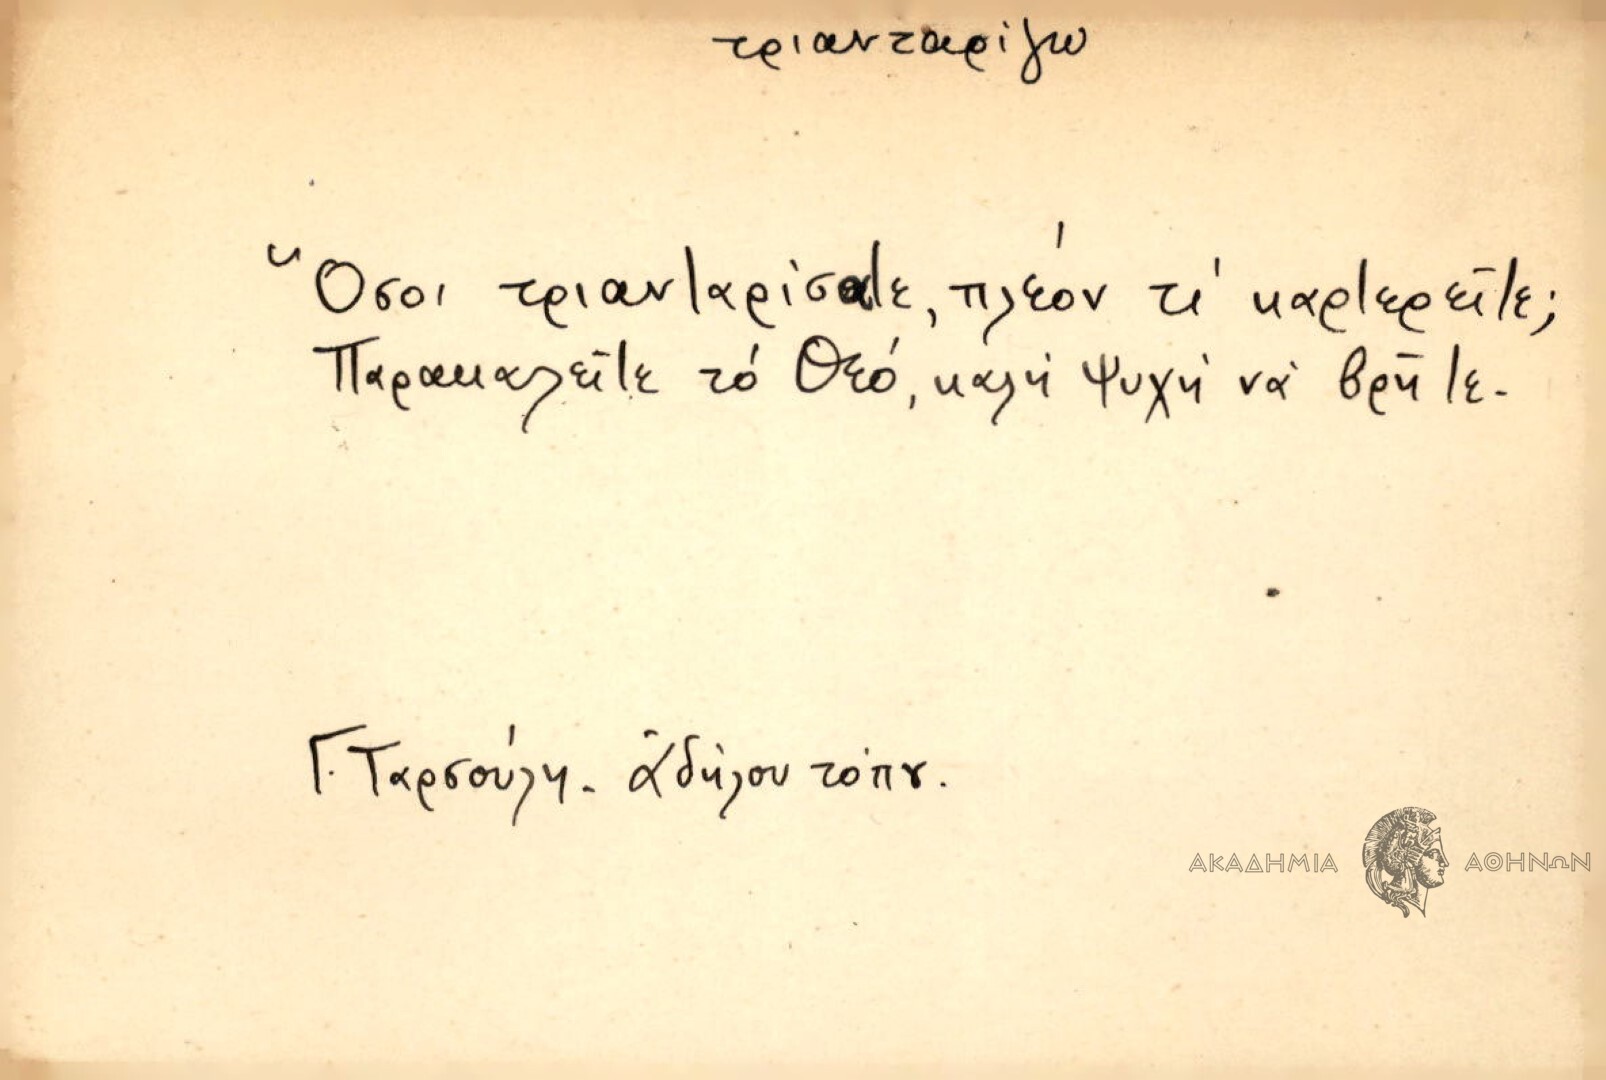 τριανταρίζω
Ὅσοι τριανταρίσατε, πλέον τί καρτερεῖτε;
Παρακαλεῖτε τό Θεό, καλή ψυχή νά βρῆτε.
Γ. Ταρσούλη. Ἀδήλου τόπου.
ΑΚΑΔΗΜΙΑ ΑΘΗΝΩΝ